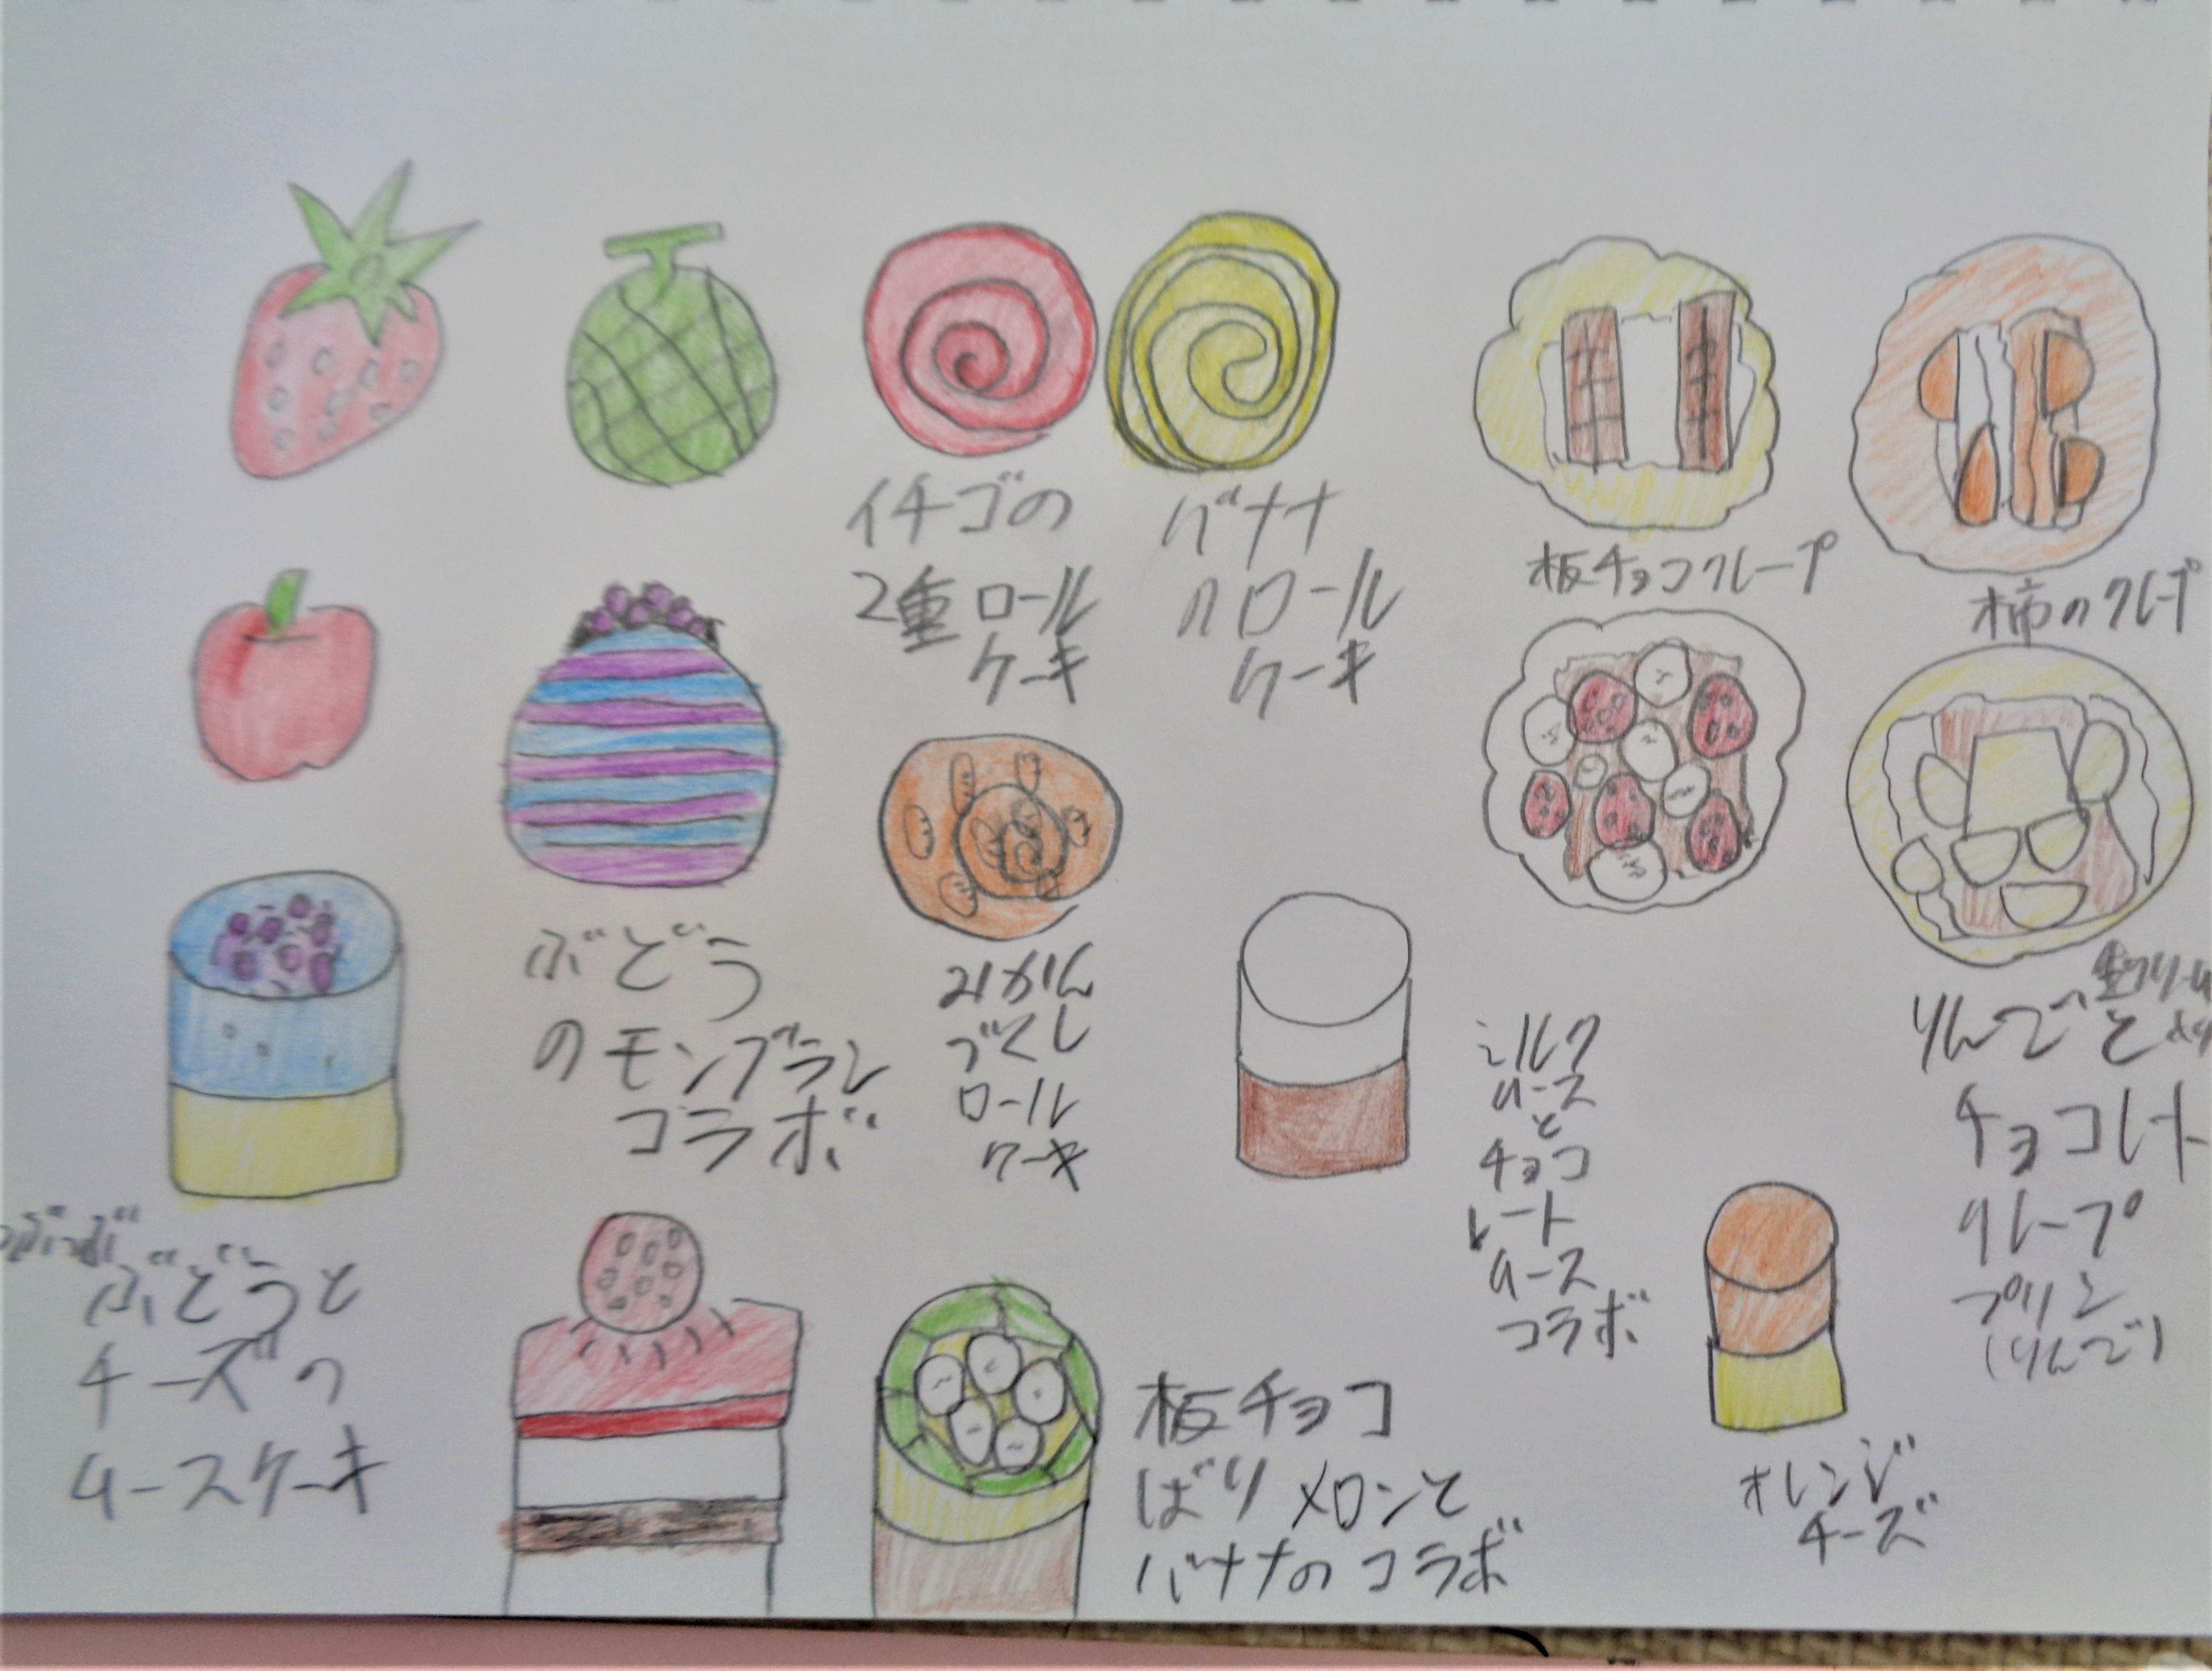 イチゴの
2重ロール
ケーキ
バナナ
のロール
ケーキ
板チョコクレープ
柿のクレープ
ぶどう
のモンブラン
コラボ
みかん
づくし
ロール
ケーキ
ミルク
ムース
と
チョコ
レート
ムース
コラボ
生クリーム
りんごと
チョコレート
クレープ
プリン
(りんご)
つぶつぶ
ぶどうと
チーズの
ムースケーキ
板チョコ
ばりメロンと
バナナのコラボ
オレンジ
チーズ